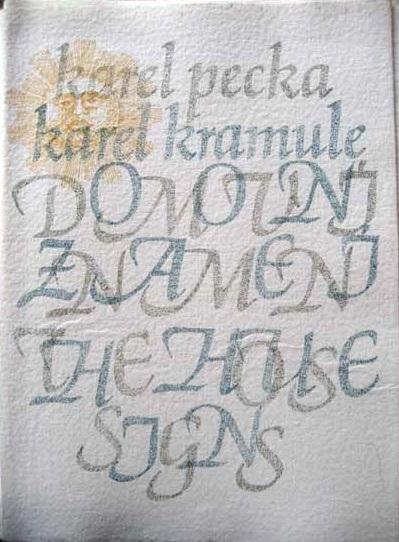 karel pecka
karel kramule
DOMOVNÍ
ZNAMENÍ
THE HOUSE
SIGNS